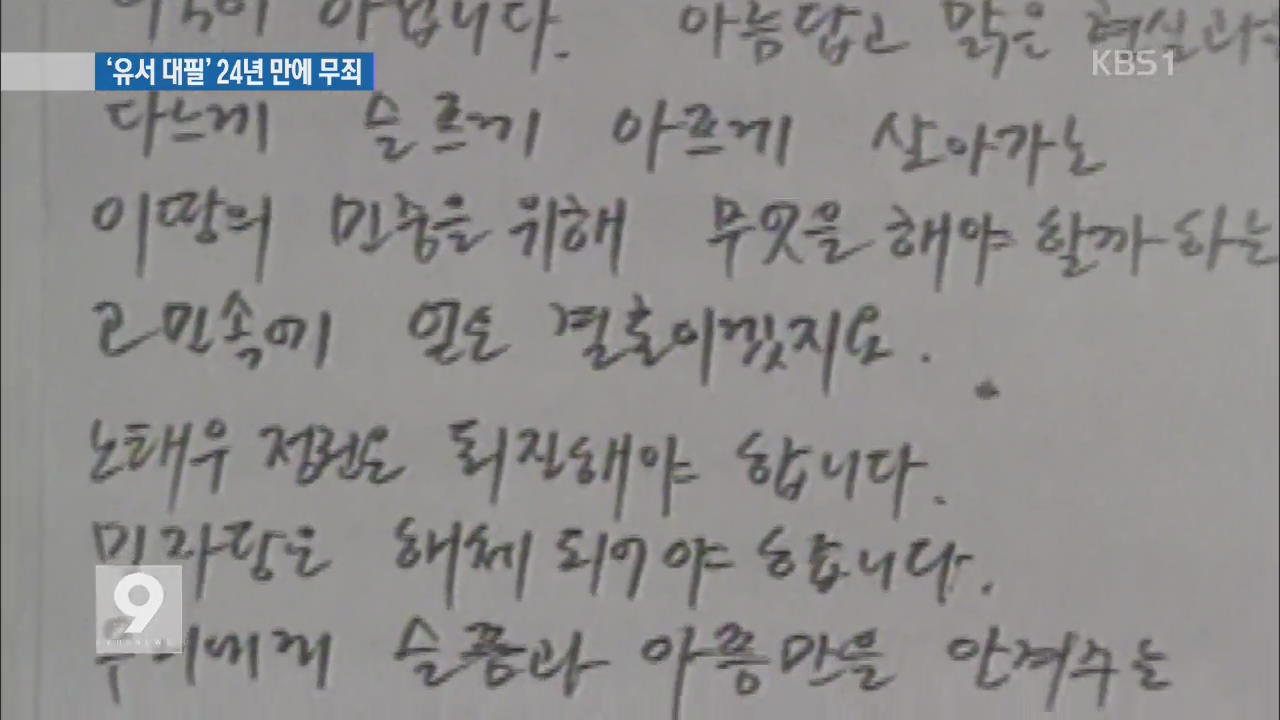 ‘유서 대필’ 24년 만에 무죄
KBS1
아닙니다. 아름답고 맑은 현실과는
다르게 슬프게 아프게 살아가는
이땅의 민중을 위해 무엇을 해야 할까 하는
고민속에 얻은 결론이겠지요.
노태우 정권은 퇴진해야 합니다.
민자당은 해체 되어야 합니다.
9
우리에게 슬픔과 아픔만을 안겨주는